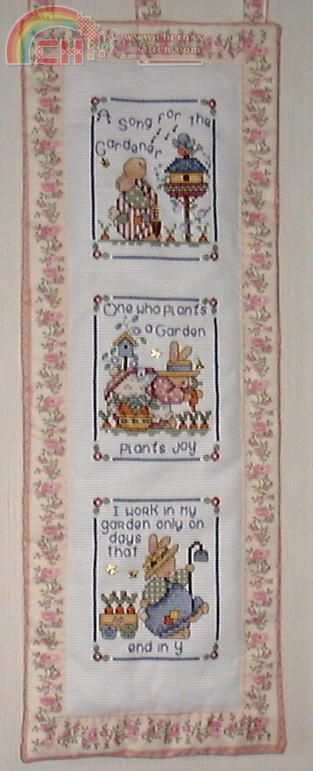 A Song for the
Gardener
One who plants
a Garden
plants Joy
I work in my
garden only on
days
that
end in y